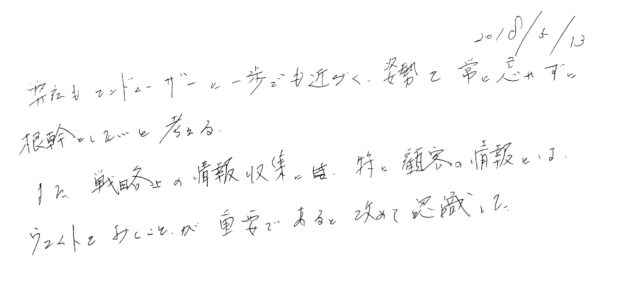 2018/5/13
弊社もエンドユーザーに一歩でも近づく、姿勢を常に忘れずに
根幹としたいと考える。
また戦略上の情報収集には、特に顧客の情報には、
ウエイトをおくことが重要であると改めて認識した